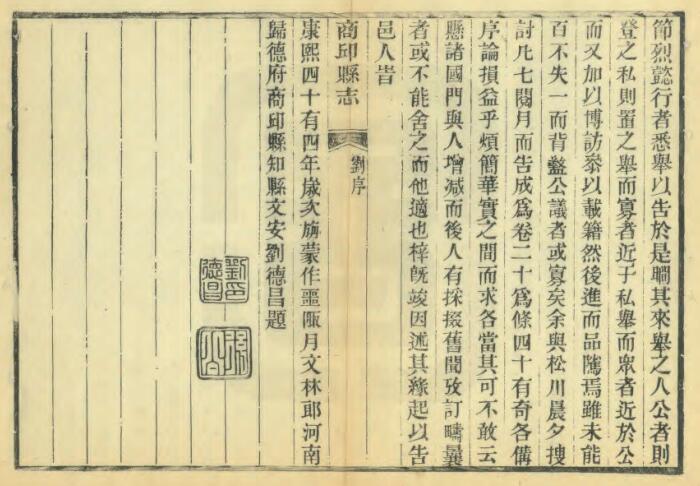 節烈懿行者悉舉以告於是瞯其來舉之人公者則
登之私則置之舉而寡者近于私舉而眾者近於公
而又加以博訪叅以載籍然後進而品隲焉雖未能
百不失一而背盭公議者或寡矣余與松川晨夕搜
討凡七閱月而告成爲卷二十爲條四十有奇各僃
序論損益乎煩簡華實之間而求各當其可不敢云
懸諸國門與人增减而後人有採掇舊聞攷訂疇曩
者或不能舍之而他適也梓旣竣因述其緣起以告
邑人旹
商邱縣志
劉序
康熙四十有四年歲次旃蒙作噩陬月文林郎河南
歸德府商邱縣知縣文安劉德昌題
劉印德昌